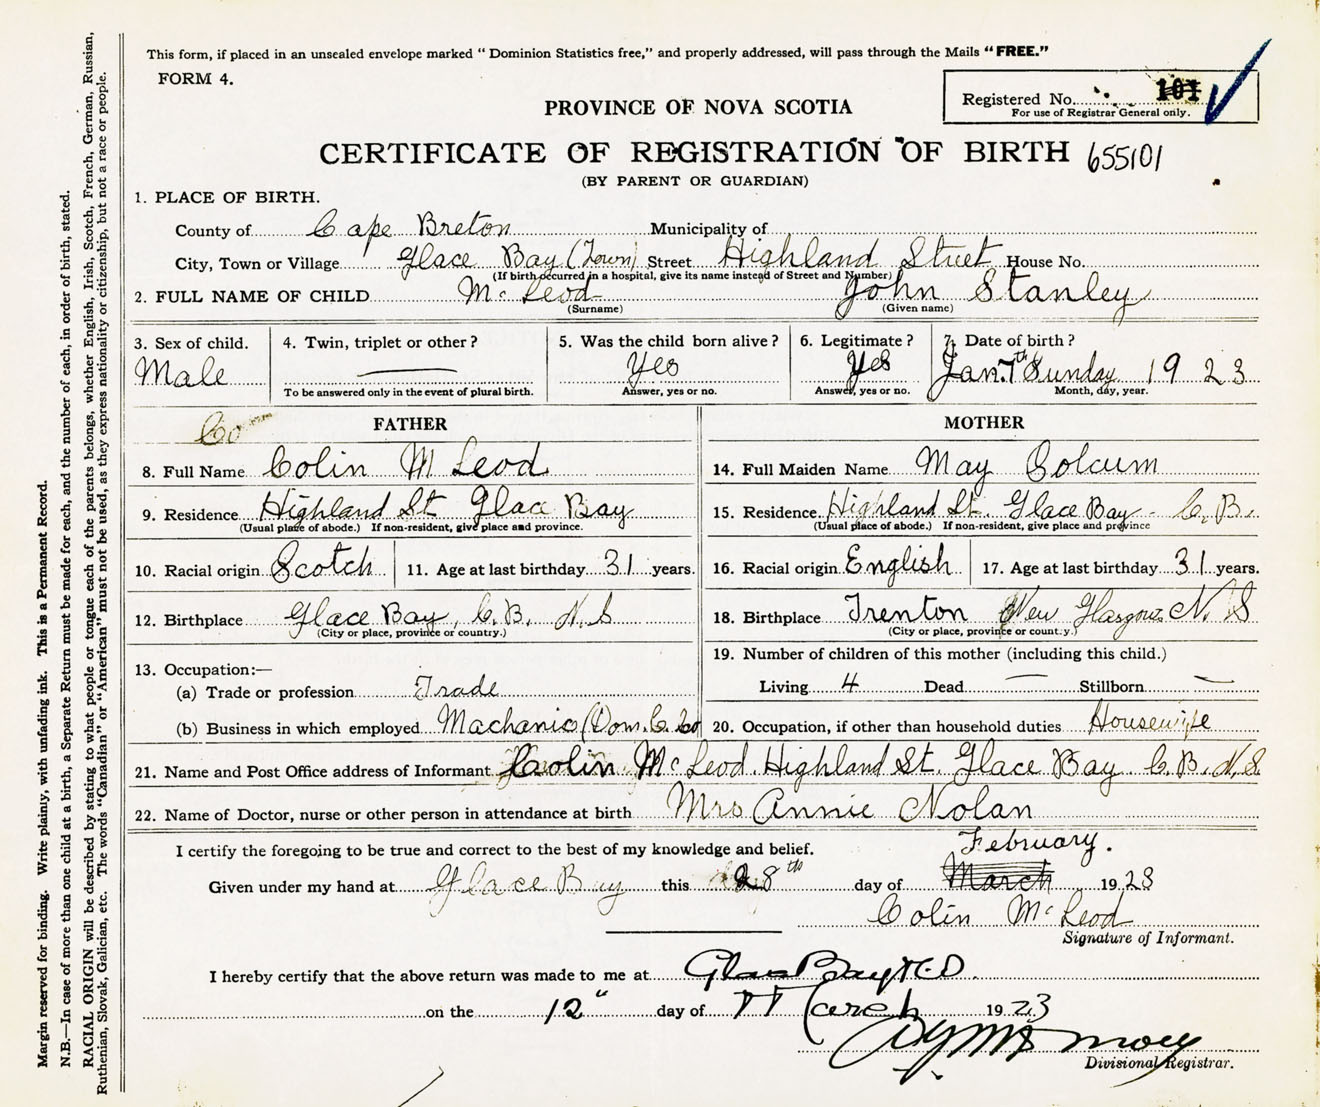 This form, if placed in an unsealed envelope marked “ Dominion Statistics free,” and properly addressed, will pass through the Mails “FREE.”
FORM 4.
Registered No. 101
For use of Registrar General only.
PROVINCE OF NOVA SCOTIA
CERTIFICATE OF REGISTRATION OF BIRTH 655101
(BY PARENT OR GUARDIAN)
1. PLACE OF BIRTH.
County of Cape Breton Municipality of
City, Town or Village Glace Bay (Town) Street Highland Street House No.
(If birth occurred in a hospital, give its name instead of Street and Number)
2. FULL NAME OF CHILD Mc Leod John Stanley
(Surname) (Given name)
3. Sex of child. 4. Twin, triplet or other? 5. Was the child born alive? 6. Legitimate? 7. Date of birth?
Male Yes Yes Jan. 7th Sunday 1923
To be answered only in the event of plural birth. Answer, yes or no. Answer, yes or no. Month, day, year.
Co FATHER MOTHER
8. Full Name Colin Mc Leod 14. Full Maiden Name May Colcum
9. Residence Highland St Glace Bay 15. Residence Highland St. Glace Bay - C. B.
(Usual place of abode.) If non-resident, give place and province. (Usual place of abode.) If non-resident, give place and province
10. Racial origin Scotch 11. Age at last birthday 31 years. 16. Racial origin English 17. Age at last birthday 31 years.
12. Birthplace Glace Bay, C.B. N.S 18. Birthplace Trenton New Glasgow N. S
(City or place, province or country.) (City or place, province or country.)
13. Occupation:— 19. Number of children of this mother (including this child.)
(a) Trade or profession Trade Living 4 Dead — Stillborn —
(b) Business in which employed Machanic (Dom. C. 20. Occupation, if other than household duties Housewife
21. Name and Post Office address of Informant Colin Mc Leod. Highland St. Glace Bay C. B. N.S.
22. Name of Doctor, nurse or other person in attendance at birth Mrs Annie Nolan
I certify the foregoing to be true and correct to the best of my knowledge and belief. February.
Given under my hand at Glace Bay this 28th day of March 1923
Colin Mc Leod
Signature of Informant.
I hereby certify that the above return was made to me at Glace Bay
on the 12" day of March 1923
Divisional Registrar.
Margin reserved for binding. Write plainly, with unfading ink. This is a Permanent Record.
N.B.—In case of more than one child at a birth, a Separate Return must be made for each, and the number of each, in order of birth, stated.
RACIAL ORIGIN will be described by stating to what people or tongue each of the parents belongs, whether English, Irish, Scotch, French, German, Russian,
Ruthenian, Slovak, Galician, etc. The words “Canadian” or “American” must not be used, as they express nationality or citizenship, but not a race or people.